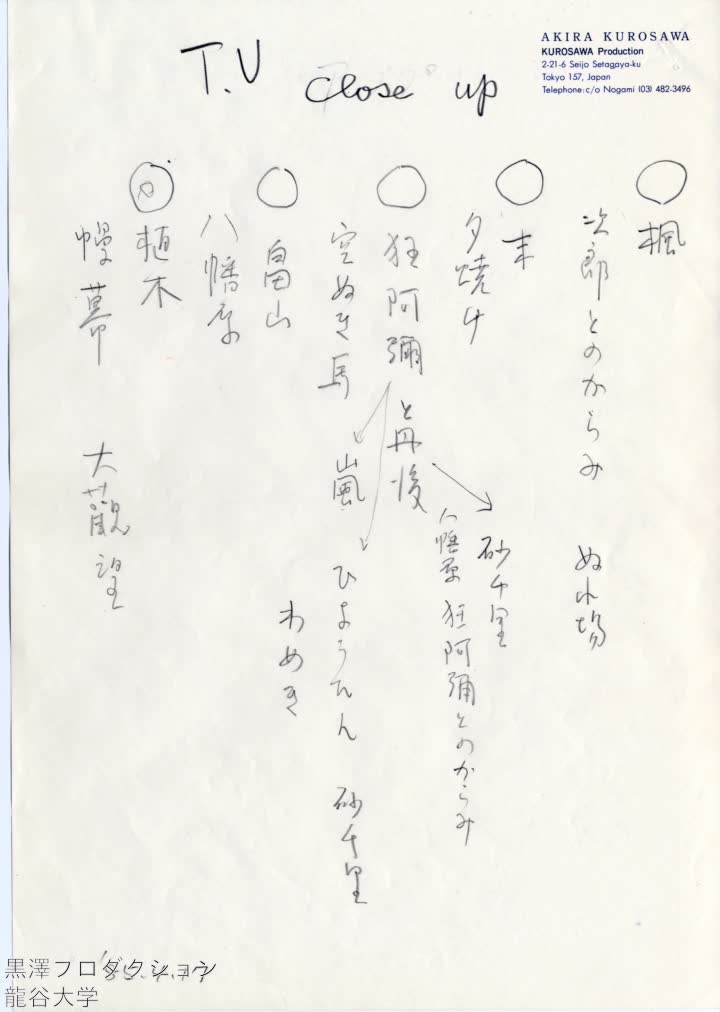 AKIRA KUROSAWA
KUROSAWA Production
2-21-6 Seijo Setagaya-ku
Tokyo 157, Japan
Telephone: c/o Nogami (03) 482-3496
T.V close up
楓
次郎とのからみ ぬれ場
末
夕焼け
砂千里
八幡原 狂阿彌とのからみ
狂阿彌と丹後
空ぬき馬 嵐 ひょうたん 砂千里
わめき
畠山
八幡原
植木
幔幕 大観望
黒澤プロダクション
龍谷大学